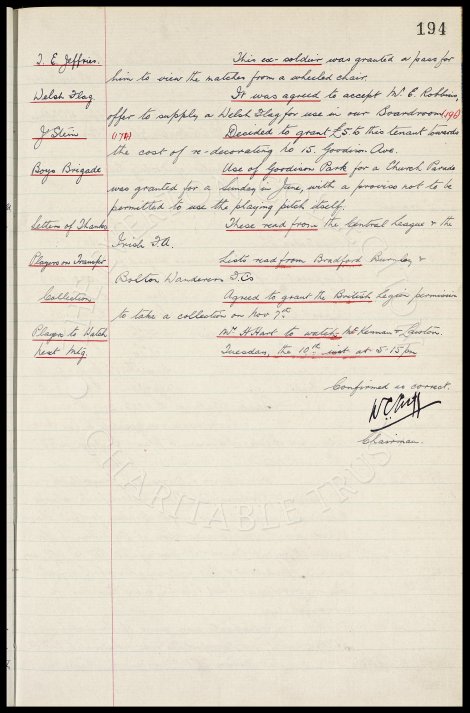 194
T. E. Jeffries. This ex-soldier was granted a pass for
him to view the matches from a wheeled chair.
Welsh Flag It was agreed to accept Mr E. Robbins,
offer to supply a Welsh Flag for use in our Boardroom (190)
J Stein (174) Decided to grant £5 to this tenant towards
the cost of re-decorating No 15. Goodison Ave.
Boys Brigade Use of Goodison Park for a Church Parade
was granted for a Sunday in June, with a proviso not to be
permitted to use the playing pitch itself.
Letters of Thanks These read from the Central League & the
Irish F.A.
Players on Transfer Lists read from Bradford Burnley &
Bolton Wanderers F.Cs
Collection Agreed to grant the British Legion permission
to take a collection on Nov 7th
Player to Watch Mr H Hart to watch
Next Mtg. Tuesday, the 10th inst at 5-15 pm
Confirmed as correct.
W C Cuff
Chairman.
CHARITABLE TRUST